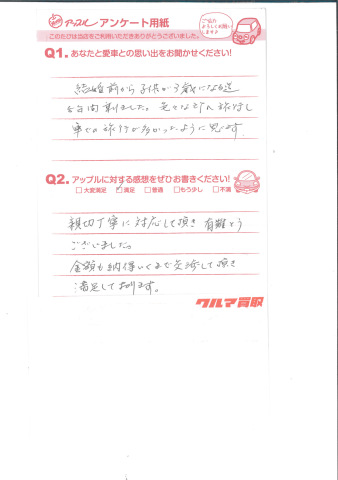 アップル アンケート用紙
ご協力よろしくお願いします♪
このたびは当店をご利用いただきありがとうございました。
Q1. あなたと愛車との思い出をお聞かせください!
結婚前から子供が3歳になる迄
年間乗りました。色々な所へ旅行し
車での旅行が多かったように思います。
Q2. アップルに対する感想をぜひお書きください!
□大変満足 ☑満足 □普通 □もう少し □不満
親切丁寧に対応して頂き 有難とう
ございました。
金額も納得いくまで交渉して頂き
満足しております。
クルマ買取